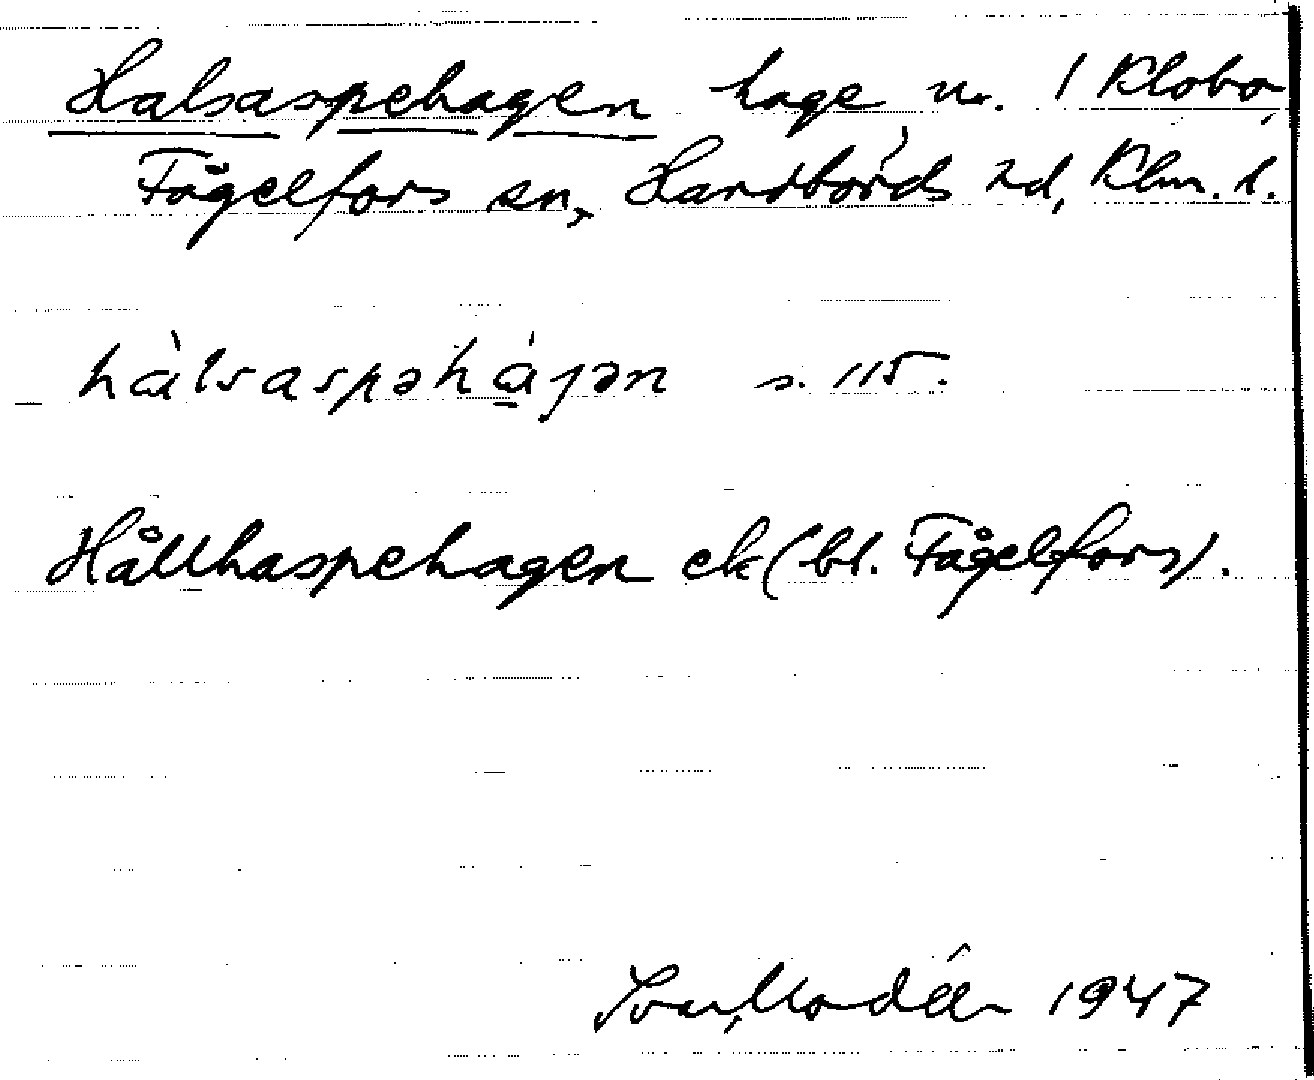 Halsaspehagen hage nr. 1 Klobo,
Fågelfors sn, Handbörds hd, Klm. l.
hàlsaspəhájən s. 115.
Hållhaspehagen ek (bl. Fågelfors).
Ivar Modéer 1947